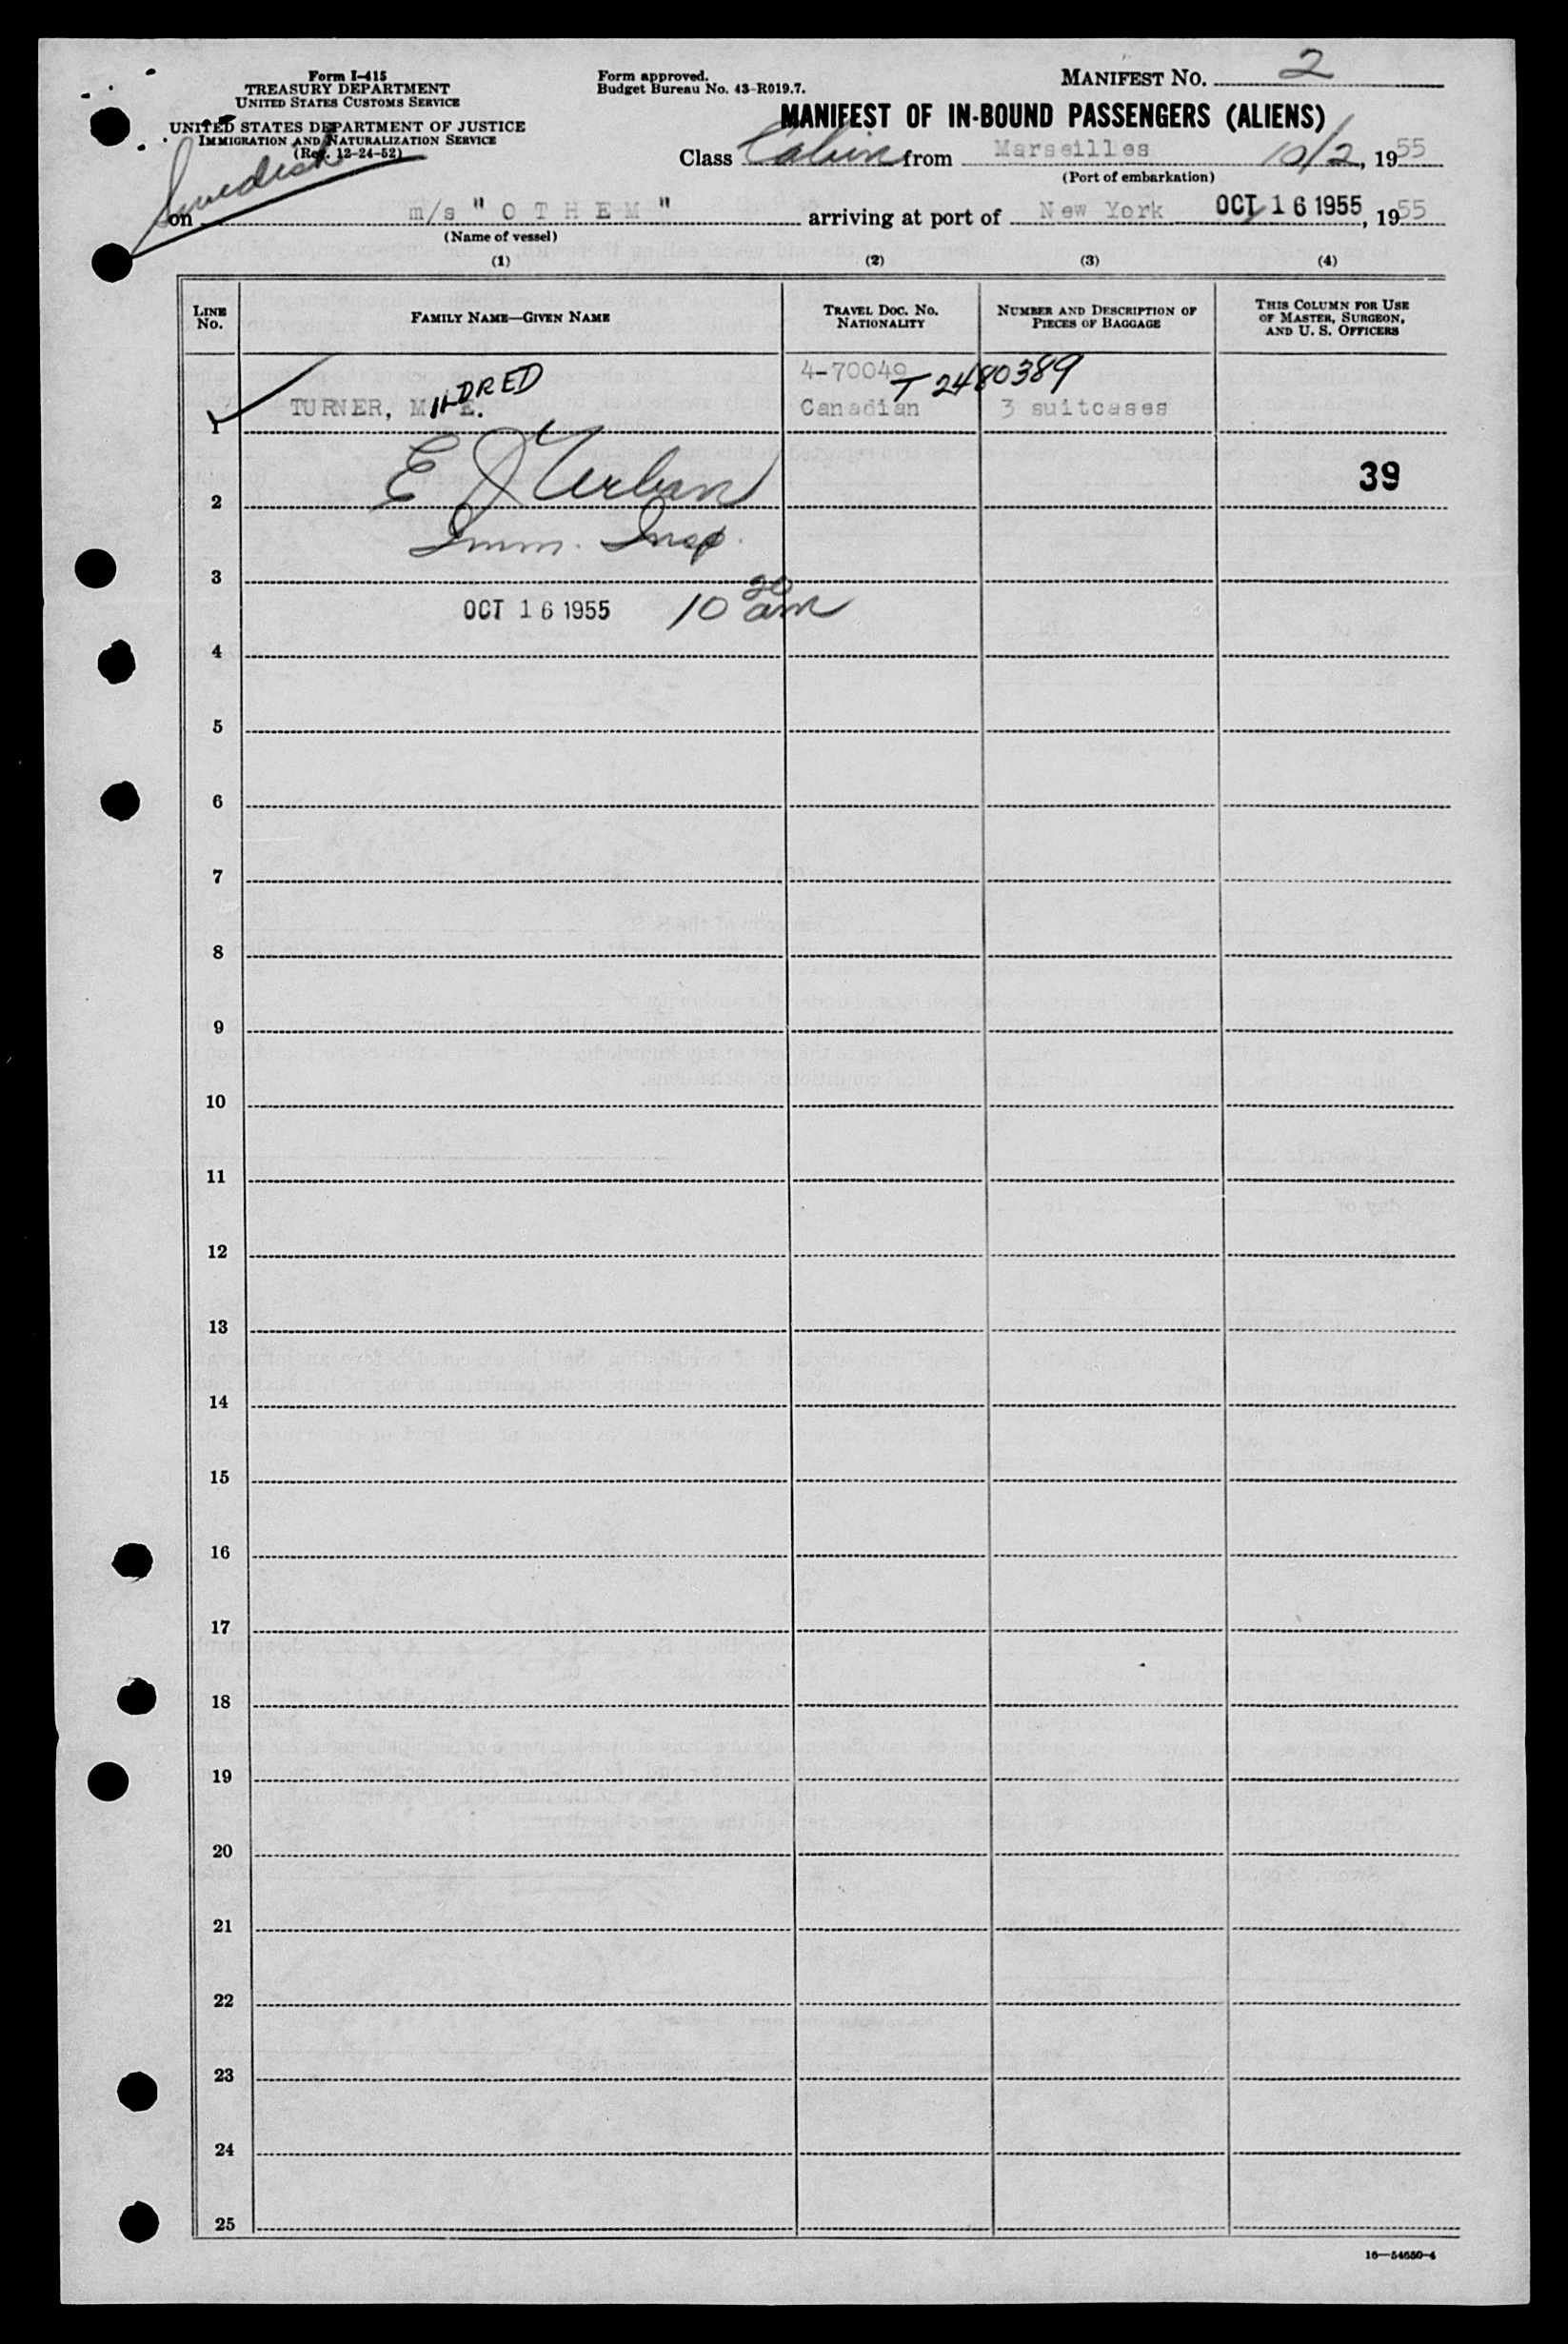 Form I-415
TREASURY DEPARTMENT
UNITED STATES CUSTOMS SERVICE
UNITED STATES DEPARTMENT OF JUSTICE
IMMIGRATION AND NATURALIZATION SERVICE
(Rev. 12-24-52)
Swedish
Form approved.
Budget Bureau No. 43-R019.7.
MANIFEST NO. 2
MANIFEST OF IN-BOUND PASSENGERS (ALIENS)
Class Cabin from Marseilles 10/2, 1955
(Port of embarkation)
on m/s " O T H E M " arriving at port of New York OCT 16 1955, 1955
(Name of vessel)
(1) (2) (3) (4)
LINE No. FAMILY NAME—GIVEN NAME TRAVEL DOC. NO. NATIONALITY NUMBER AND DESCRIPTION OF PIECES OF BAGGAGE THIS COLUMN FOR USE OF MASTER, SURGEON, AND U. S. OFFICERS
4-70049 T 2480389
1 TURNER, MILDRED E. Canadian 3 suitcases
E J Urban
2 39
Imm. Insp.
3
OCT 16 1955 10 20 am
4
5
6
7
8
9
10
11
12
13
14
15
16
17
18
19
20
21
22
23
24
25
16—54650-4